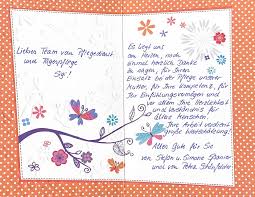 Liebes Team von Pflegedienst
und Tagespflege
Es liegt uns
am Herzen, noch
einmal herzlich Danke
zu sagen, für Ihren
Einsatz bei der Pflege unserer
Mutter, für Ihre Kompetenz, für
Ihr Einfühlungsvermögen und
vor allem Ihre Herzlichkeit
und Verständnis für
ältere Menschen.
Ihre Arbeit verdient
große Wertschätzung!
Alles Gute für Sie
von Stefan u. Simone
und von Petra